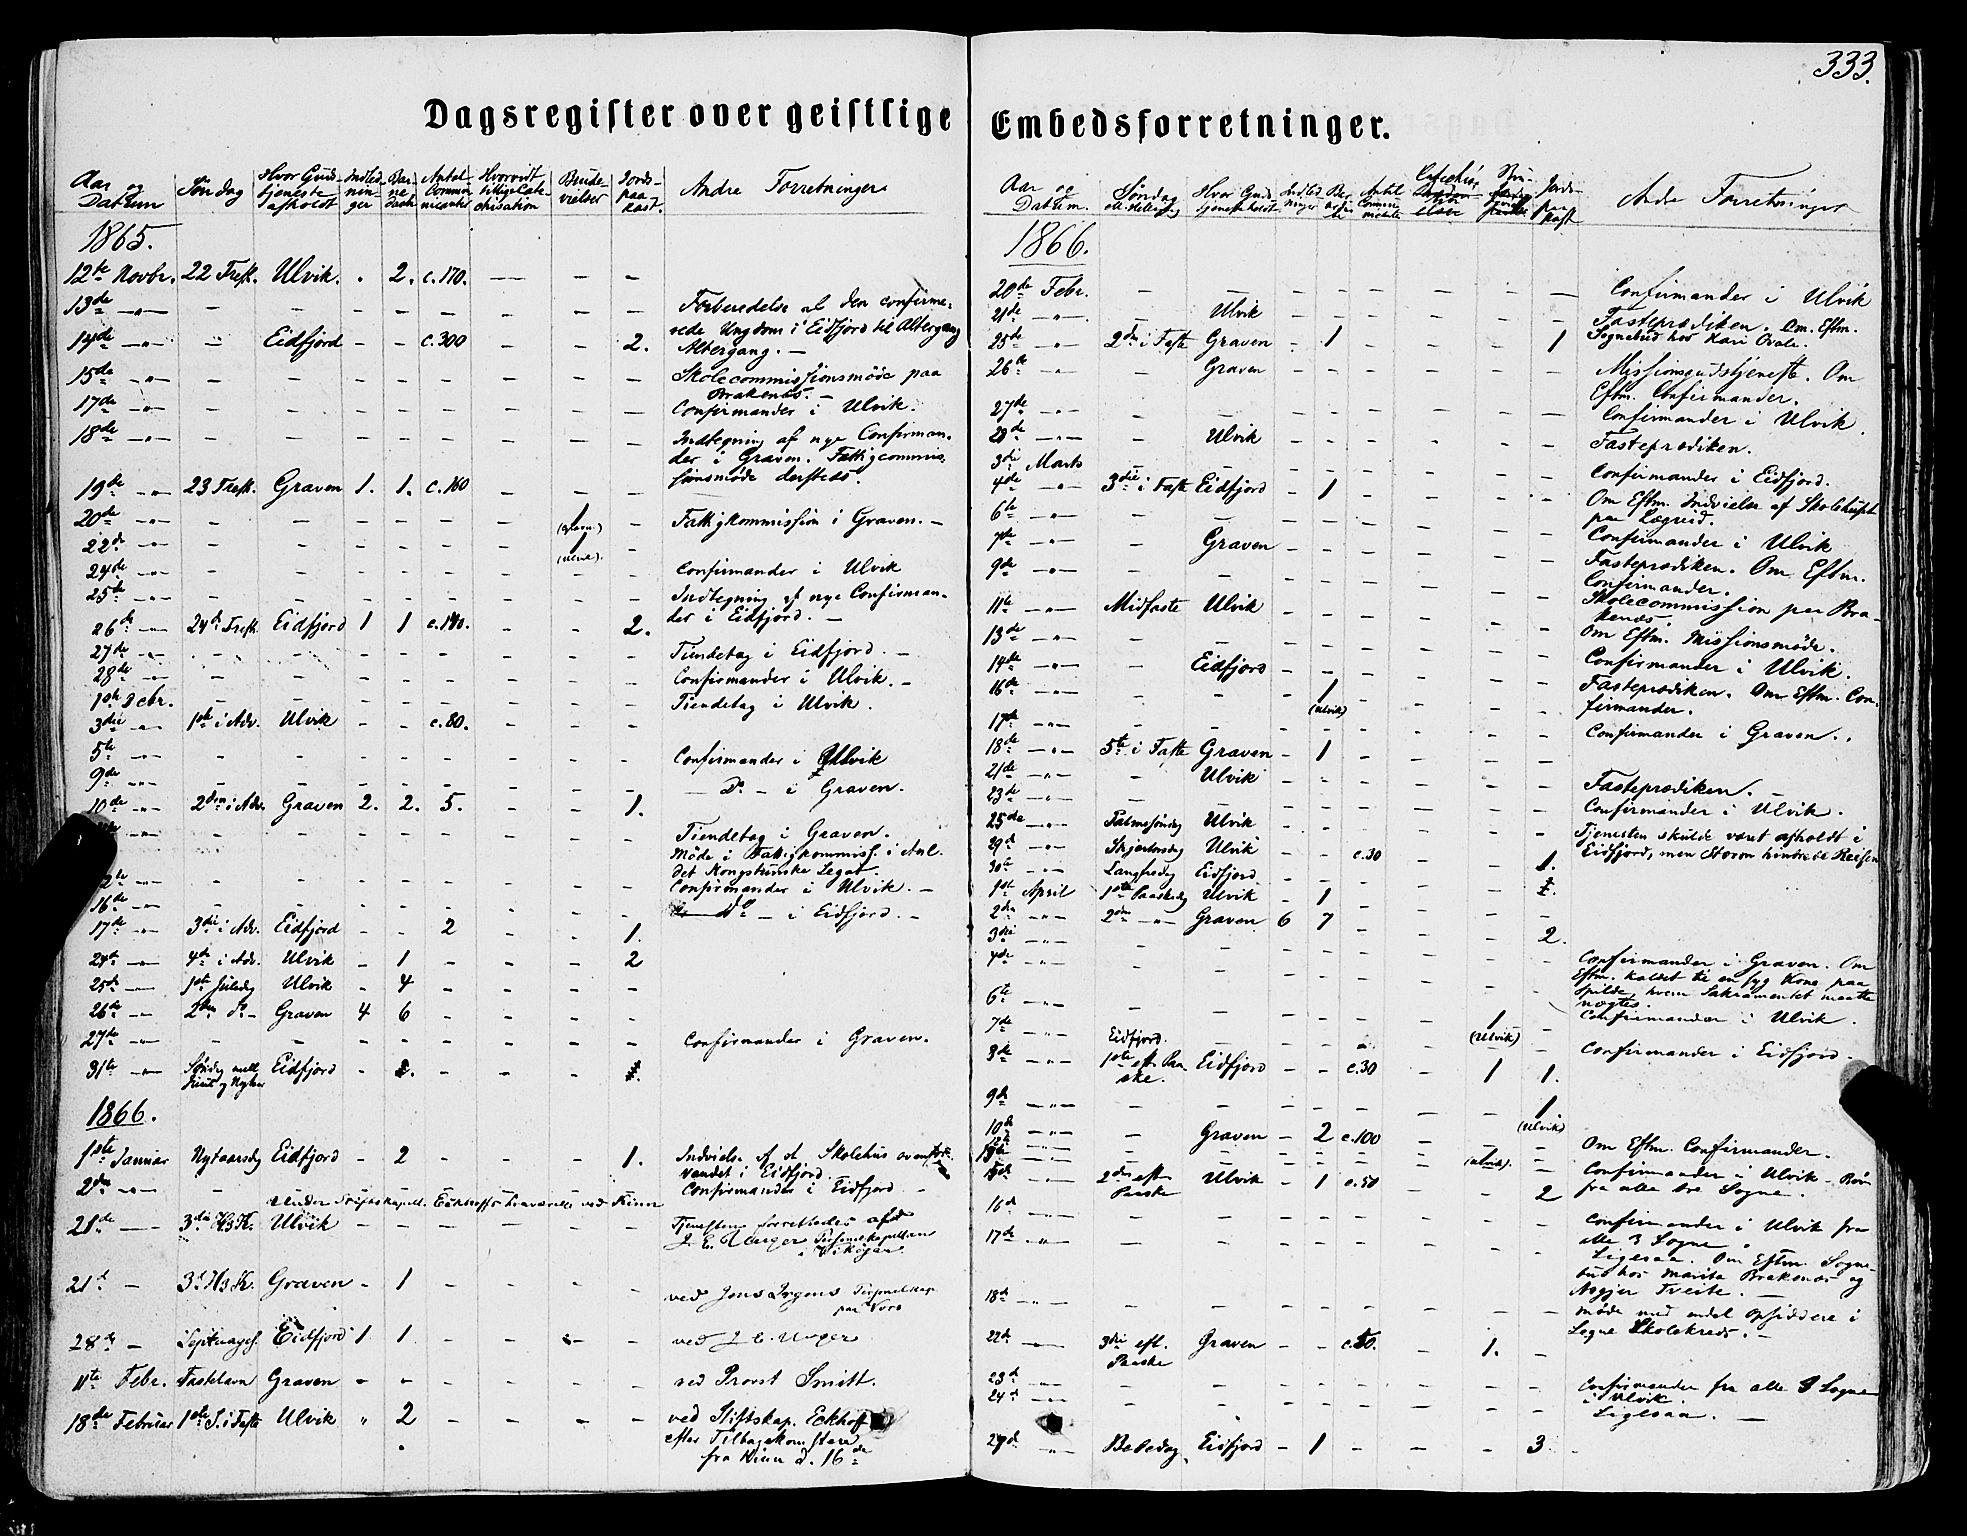 333.
Dagsregister over geistlige Embedsforretninger.
Aar og Datum Søndag Hvor Gudstjeneste afholdt Indledninger Barnedaab Antal Communicanter Hvorvidt tillige Catechisation Brudevielser Jordspaakast. Andre Forretninger
1865.
12te Novbr. 22 Tref. Ulvik. . 2. c.170. — — —
13de —„— — Forberedelse af den confirme-
rede Ungdom i Eidfjord til Altergang
14de —„— — Eidfjord — — c.300 — — 2. Altergang. —
15de —„— Skolecommissionsmøde paa
Brakenæs. —
17de —„— Confirmander i Ulvik.
18de —„— Indtegning af nye Confirman-
der i Graven. Fattigcommis-
sionsmøde dersteds.
19de —„— 23 Tref. Graven 1. 1. c.160 — — —
20de —„— 1 (Graven.) — Fattigkommission i Graven. —
22de —„— 1 (Ulvik).
24de —„— Confirmander i Ulvik
25de —„— Indtegning af nye Confirman-
der i Eidfjord. —
26de —„— 24de Tref. Eidfjord 1 1 c.140. — — 2.
27de —„— Tiendetag i Eidfjord. —
28de —„— Confirmander i Ulvik. —
1ste Decbr. Tiendetag i Ulvik.
3die —„— 1ste i Adv. Ulvik — — c.80. — — —
5te —„— Confirmander i Ulvik
9de —„— — Do. — i Graven.
10de —„— 2den i Adv. Graven 2. 2. 5. — — 1.
—„— Tiendetag i Graven.
Møde i Fattigkommiss. i Anl.
det Kongstunske Legat.
—„— Confirmander i Ulvik. —
16de —„— Do — i Eidfjord. —
17de —„— 3die i Adv. Eidfjord — — 2 — — 1.
24de —„— 4de i Adv. Ulvik — 1 — — — 2
25de —„— 1ste Juledag Ulvik — 4
26de —„— 2den Do— Graven 4 6
27de —„— Confirmander i Graven.
31te —„— Søndag mell. Juul og Nytaar Eidfjord — 2. — — — 1.
1866.
1ste Januar Nytaarsdag Eidfjord — 2 — — — 1. Indvielse af et Skolehus ovenfor
Vandet i Eidfjord.
2den —„— Confirmander i Eidfjord —
Under Stiftskapell. Eckhoffs Fraværelse ved Kinn
21de — 3die H3K. Ulvik — — — — — — Tjenesten forrettedes af
J. E. Unger Personelkapellan
i Vikøer
21de — 3d. H3K. Graven — 1 — — — — ved Jens Irgens Personelkap.
paa Vors
28de — Septuages. Eidfjord 1 1 — — — — ved J. E. Unger
11te Febr. Fastelavn Graven — — — — — — ved Provst Smitt.
18de Februar 1ste S. i Faste Ulvik „ 2 — — — — ved Stiftskap. Eckhoff
efter Tilbagekomsten
fra Kinn d. 16de
Aar og Datum. Søndag ell. Helligdag Hvor Gudstjeneste holdt Indledninger Antal Communicanter Jordspaakast Andre Forretninger
1866.
20de Febr. — Confirmander i Ulvik
21de —„— — Ulvik Fasteprædiken. Om Eftm.
Sognebud hos Kari Ovale.
25de —„— 2den i Faste Graven — 1 — — — 1
26de —„— — Graven Missionsgudstjeneste. Om
Eftm. Confirmander.
27de —„— Confirmander i Ulvik.
28de —„— — Ulvik Fasteprædiken.
3die Marts Confirmander i Eidfjord.
4de —„— 3die i Faste Eidfjord — 1 Om Eftm. Indvielse af Skolehuset
paa Lægreid.
6te —„— Confirmander i Ulvik
7de —„— — Graven Fasteprædiken. Om Eftm.
Confirmander.
9de —„— Skolecommission paa Bra-
kenæs.
11te —„— Midfaste Ulvik Om Eftm. Missionsmøde.
13de —„— Confirmander i Ulvik.
14de —„— — Eidfjord Fasteprædiken. Om Eftm. Con-
firmander.
16de —„— 1 (Ulvik)
17de —„— Confirmander i Graven.
18de —„— 5te i Faste Graven — 1
21de —„— — Ulvik Fasteprædiken. —
23de —„— Confirmander i Ulvik.
25de —„— Palmesøndag Ulvik Tjenesten skulde været afholdt i
Eidfjord, men Storm hindrede Reisen
29de —„— Skjærtorsdag Ulvik — — c.30 — — 1.
30te —„— Langfredag Eidfjord 1.
1ste April 1ste Paaskedag Ulvik — 1
2den —„— 2den —„— Graven 6 7
3die —„— 2.
4de —„— Confirmander i Graven. Om
Eftm. kaldet til en syg Kone paa
Spilde, hvem Sakramentet maatte
nægtes.
6te —„— 1 (Ulvik) Confirmander i Ulvik.
7de —„— Eidfjord. Confirmander i Eidfjord.
8de —„— 1ste eft. Paaske. Eidfjord — — c.30 — 1 1.
9de —„— 1 (Ulvik)
10de —„— — Graven — 2 c.100 — — — Om Eftm. Confirmander.
—„— (Ulvik). Confirmander i Ulvik
fra alle tre Sogne.
15de —„— 2den eft. Paaske Ulvik — 1 c.50 — — 2
16de —„— Confirmander i Ulvik fra
alle 3 Sogne.
17de —„— Ligesaa. Om Eftm. Sogne-
bud hos Marita Brakenæs og
Asgjer Tveite. —
18de —„— Møde med endel Opsiddere i
Legne Skolekreds. —
22de —„— 3die eft. Paaske Graven — — c.50. — 1.
23de —„— Confirmander fra alle 3 Sogne
i Ulvik.
24de —„— Ligesaa. —
27de —„— Bededag Eidfjord — 1 — — — 3 —